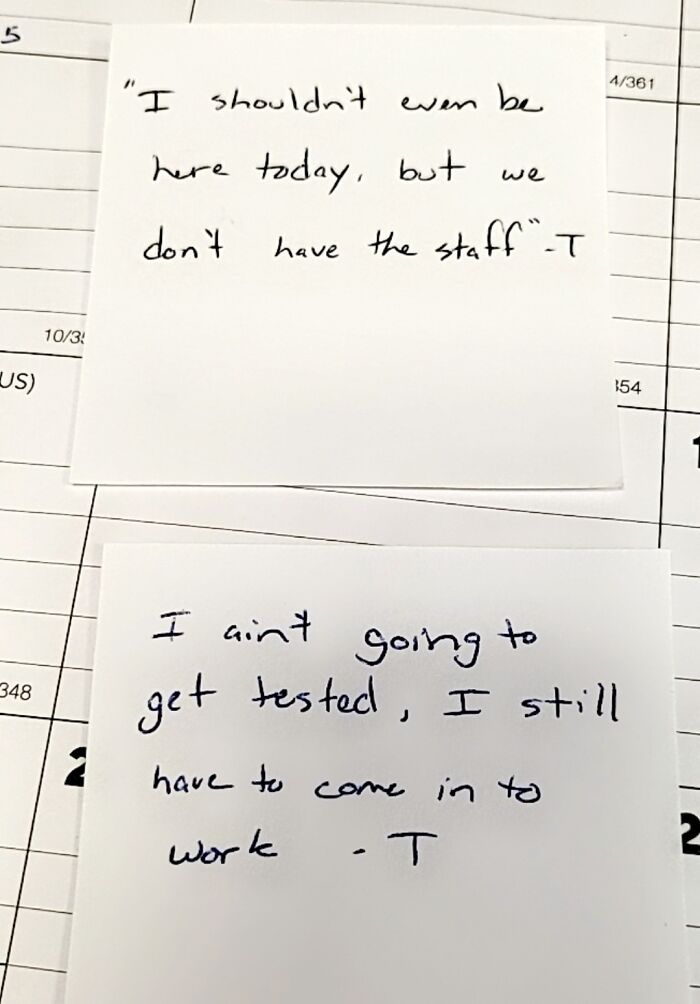 5
4/361
"I shouldn't even be
here today, but we
don't have the staff" -T
10/3
US)
354
1
I ain't going to
get tested, I still
348
have to come in to
2
work - T
2